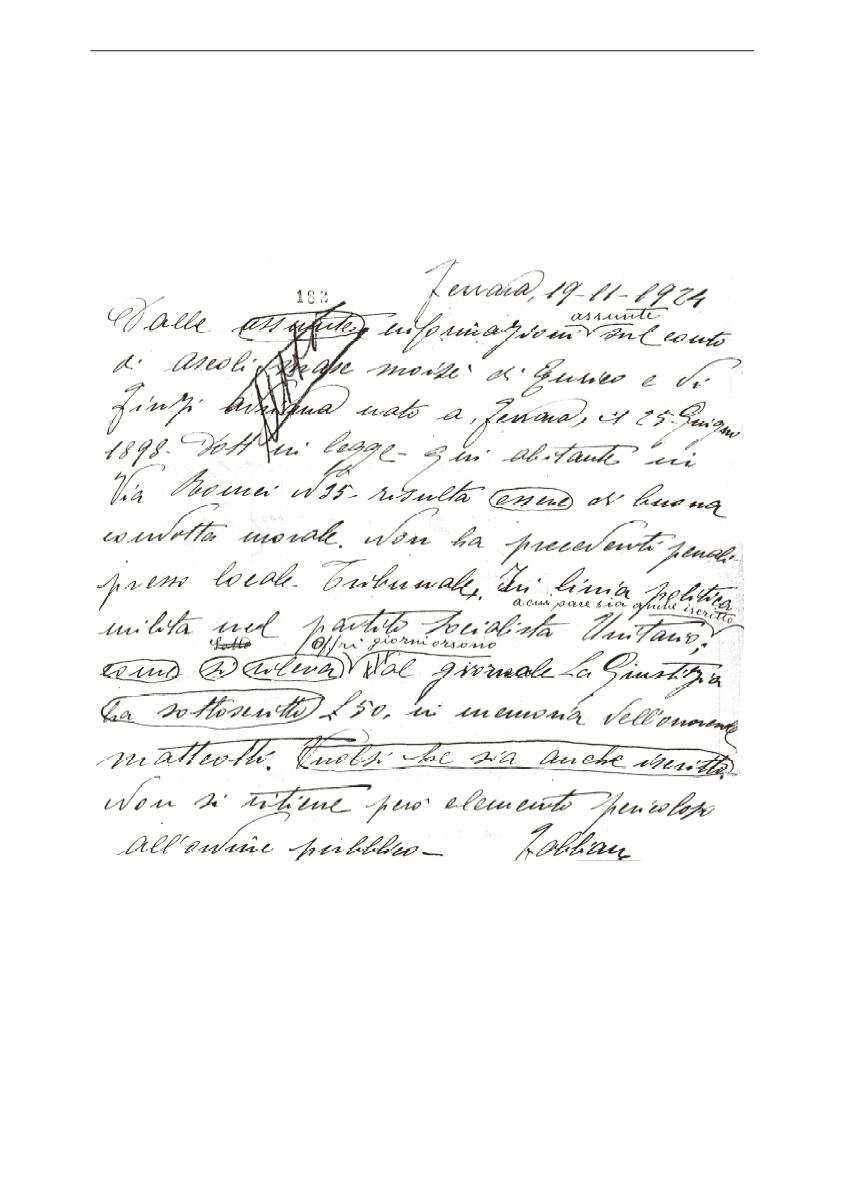 183
Ferrara, 19-11-1924
assunte
Dalle assunte informazioni sul conto
di Ascoli Mosè di Enrico e di
Finzi Arianna nato a Ferrara, il 25 Giugno
1898. Dott in legge - qui abitante in
Via Romei N 15 - risulta essere di buona
condotta morale. Non ha precedenti penali
presso locale Tribunale. In linia politica
a cui pare sia anche iscritto
milita nel partito Socialista Unitario;
offrì giorni orsono
come si rileva dal giornale La Giustizia
ha sottoscritto £50. in memoria dell'onorevole
Matteotti. Vuolsi che sia anche iscritto.
Non si ritiene però elemento pericoloso
all'ordine pubblico -